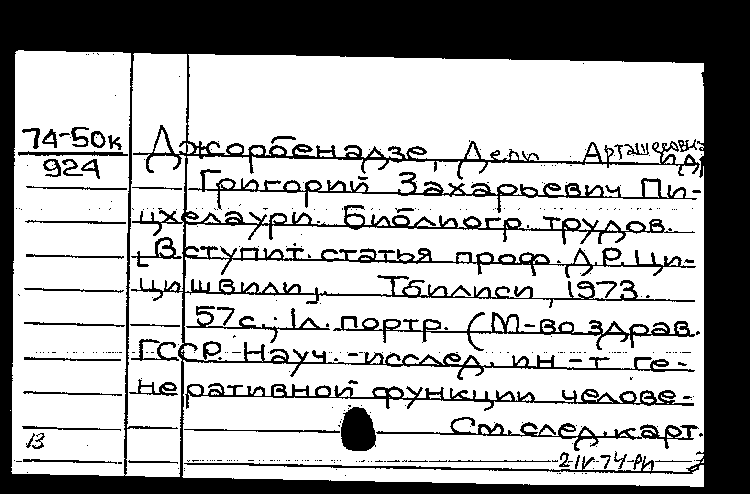 74-50к
924
Джорбенадзе, Дели Арташесовна
и др.
Григорий Захарьевич Пи-
цхелаури. Библиогр. трудов.
[Вступит. статья проф. Д.Р. Ци-
цишвили]. Тбилиси, 1973.
57с.; 1л. портр. (М-во здрав.
ГССР. Науч.-исслед. ин-т ге-
неративной функции челове-
См. след. карт.
13
2 IV-74